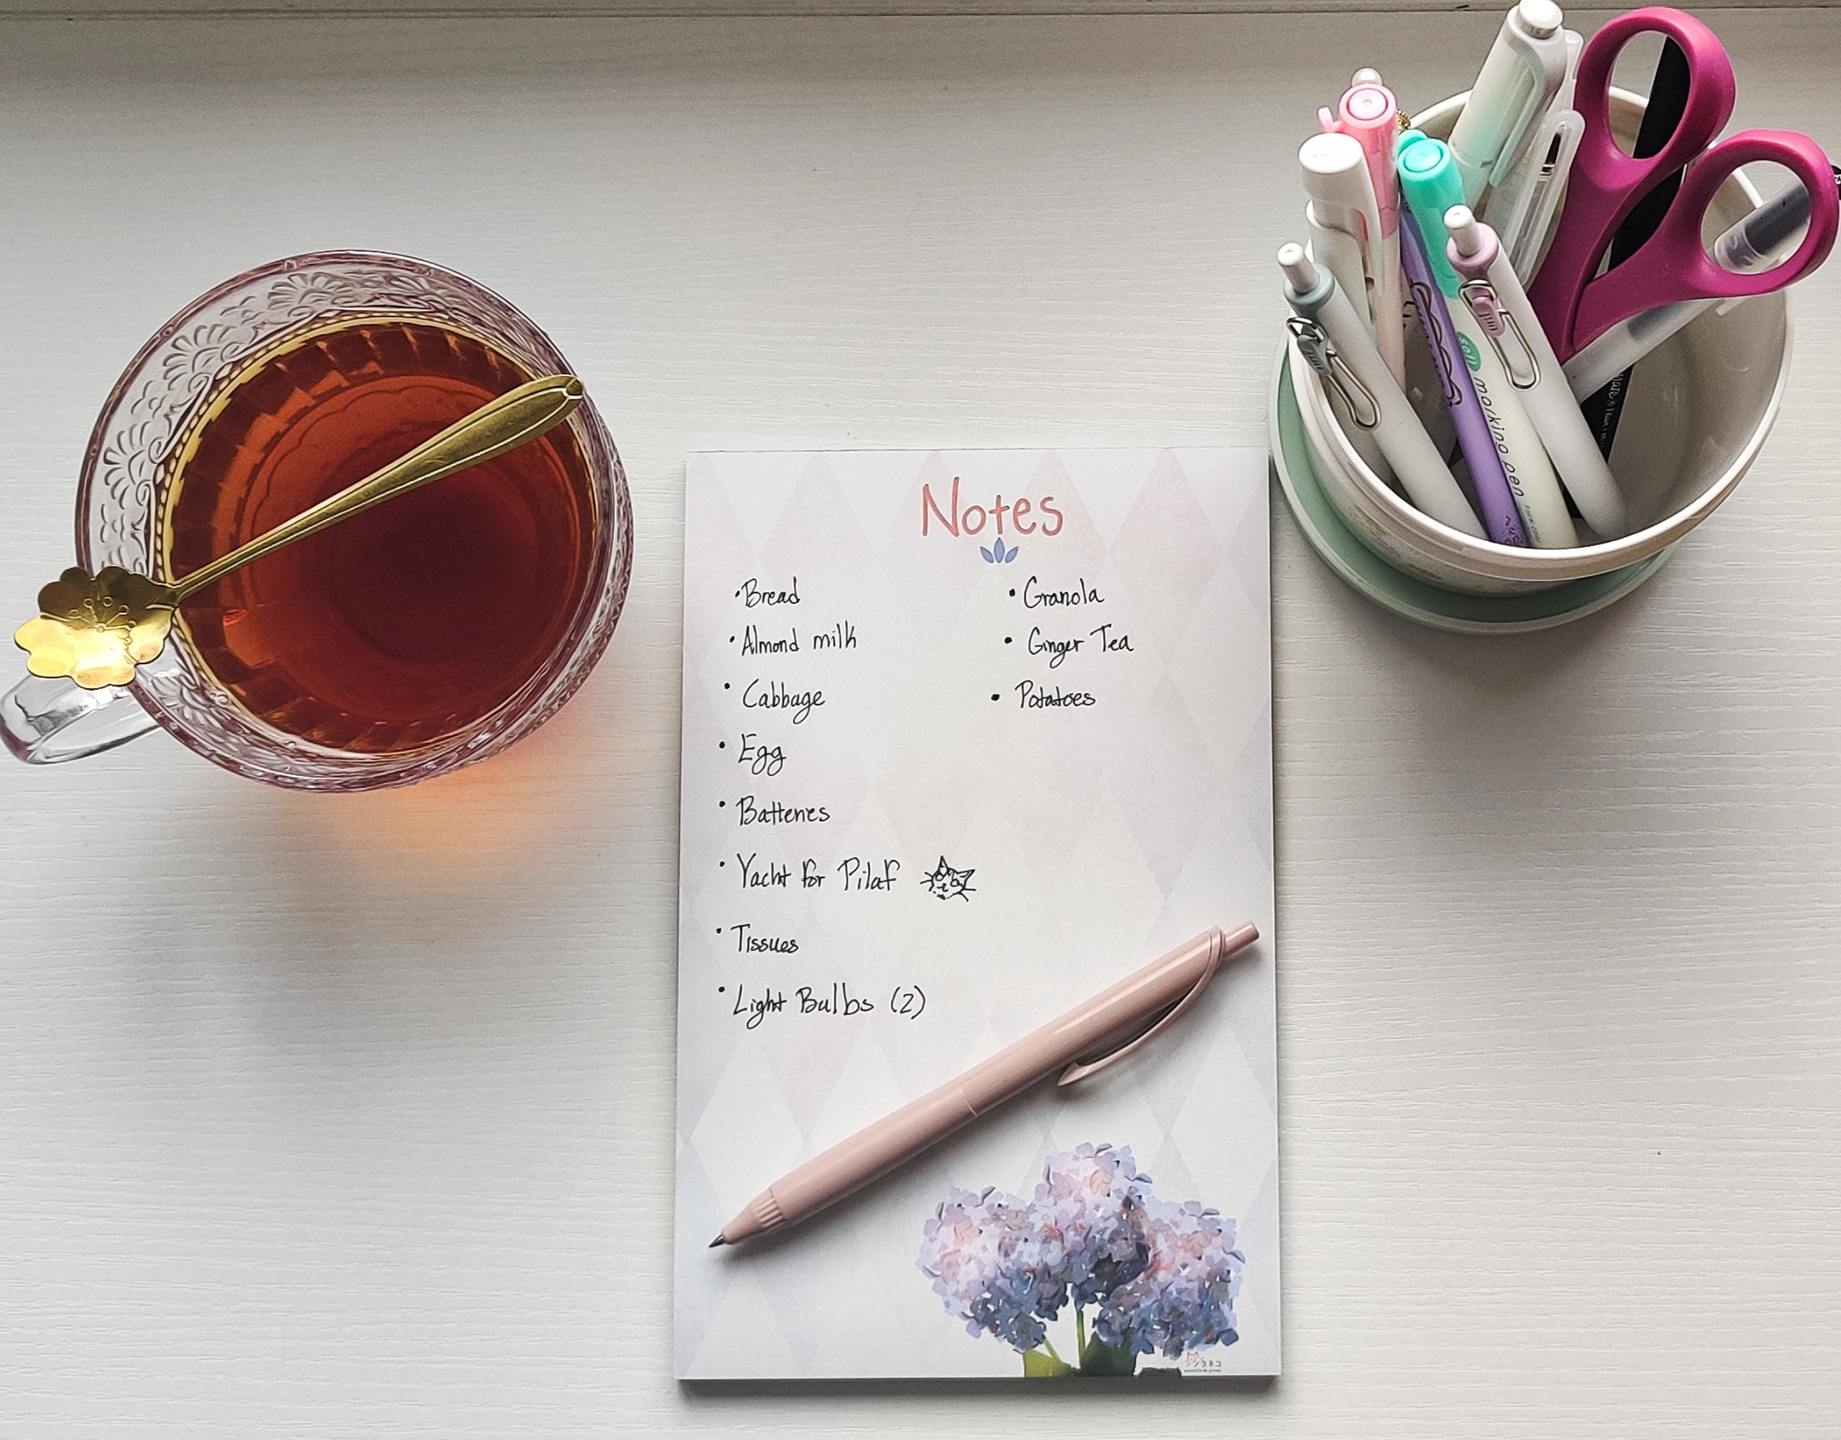 Notes
• Bread
• Almond milk
• Cabbage
• Egg
• Batteries
• Yacht for Pilaf
• Tissues
• Light Bulbs (2)
• Granola
• Ginger Tea
• Potatoes
soft marking pen